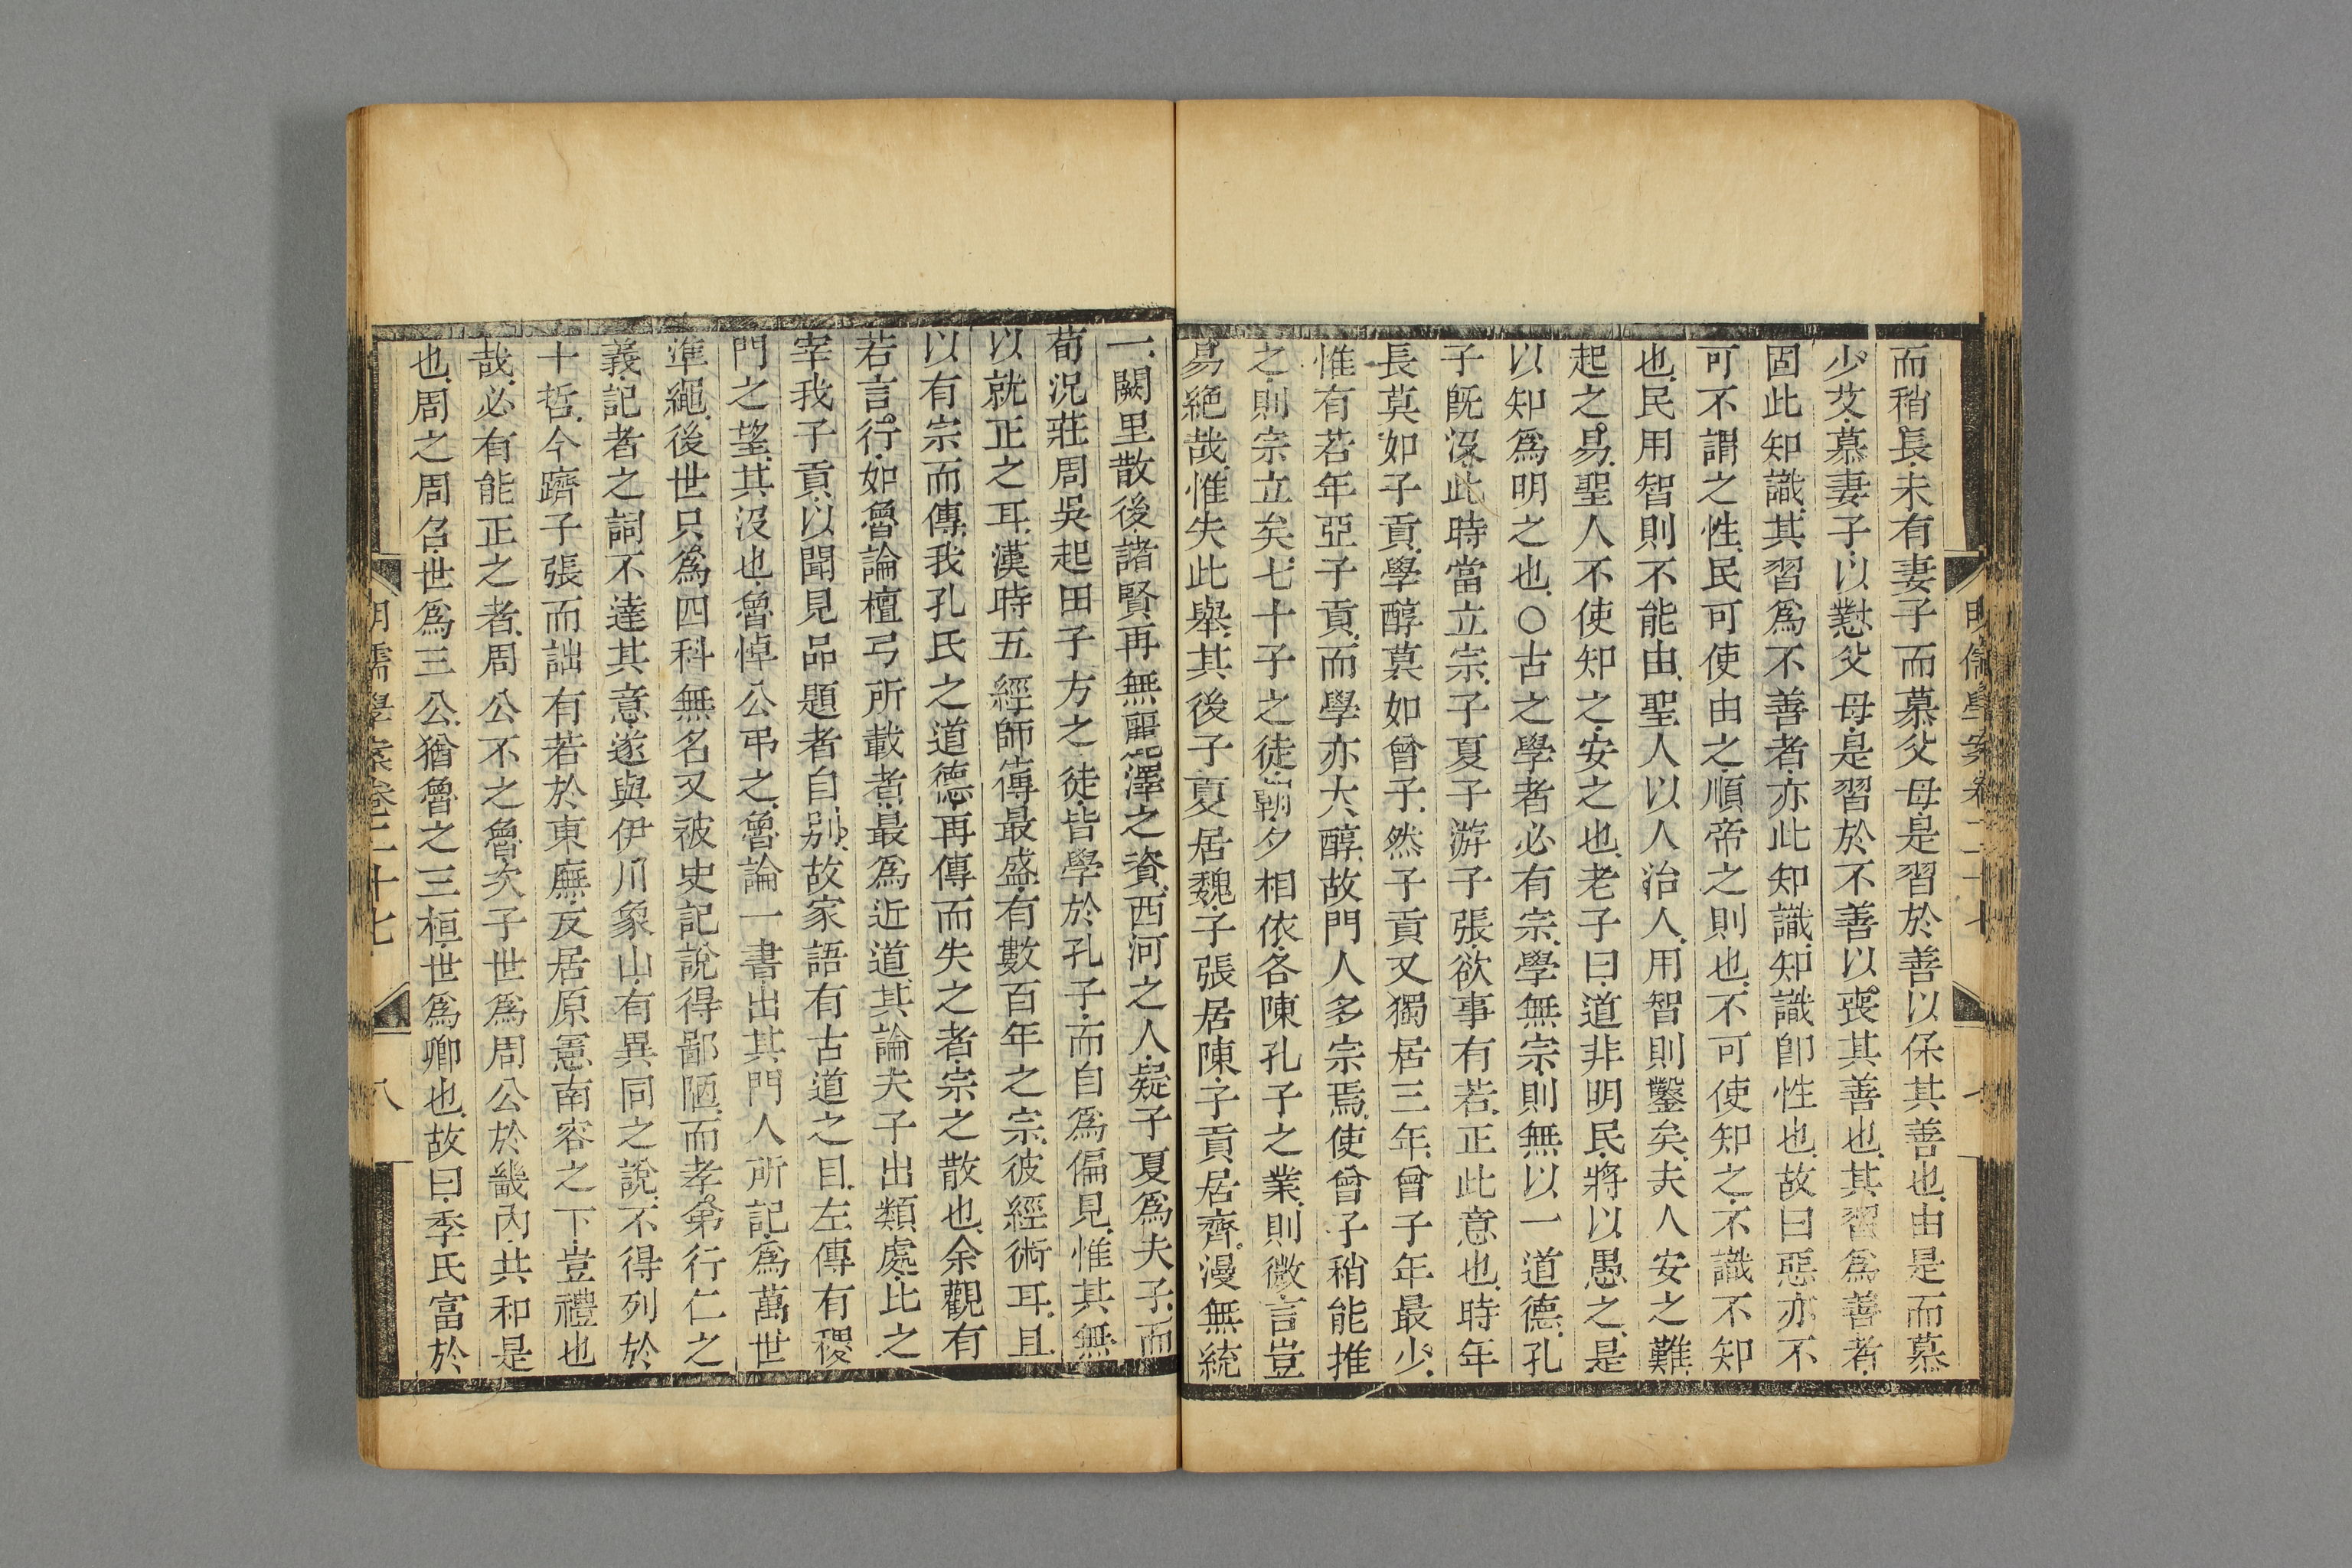 明儒學案卷二十七 七
而稍長未有妻子而慕父母是習於善以保其善也由是而慕
少艾慕妻子以懟父母是習於不善以喪其善也其習爲善者
固此知識其習爲不善者亦此知識知識卽性也故曰惡亦不
可不謂之性民可使由之順帝之則也不可使知之不識不知
也民用智則不能由聖人以人治人用智則鑿矣夫人安之難
起之易聖人不使知之安之也老子曰道非明民將以愚之是
以知爲明之也○古之學者必有宗學無宗則無以一道德孔
子旣沒此時當立宗子夏子游子張欲事有若正此意也時年
長莫如子貢學醇莫如曾子然子貢又獨居三年曾子年最少
惟有若年亞子貢而學亦大醇故門人多宗焉使曾子稍能推
之則宗立矣七十子之徒朝夕相依各陳孔子之業則微言豈
易絕哉惟失此舉其後子夏居魏子張居陳子貢居齊漫無統
一闕里散後諸賢再無麗澤之資西河之人疑子夏爲夫子而
荀況莊周吳起田子方之徒皆學於孔子而自爲偏見惟其無
以就正之耳漢時五經師傳最盛有數百年之宗彼經術耳且
以有宗而傳我孔氏之道德再傳而失之者宗之散也余觀有
若言行如魯論檀弓所載者最爲近道其論夫子出類處比之
宰我子貢以聞見品題者自別故家語有古道之目左傳有稷
門之望其沒也魯悼公弔之魯論一書出其門人所記爲萬世
準繩後世只爲四科無名又被史記說得鄙陋而孝弟行仁之
義記者之詞不達其意遂與伊川象山有異同之說不得列於
十哲今躋子張而詘有若於東廡反居原憲南容之下豈禮也
哉必有能正之者周公不之魯次子世爲周公於畿內共和是
也周之周召世爲三公猶魯之三桓世爲卿也故曰季氏富於
明儒學案卷二十七 八